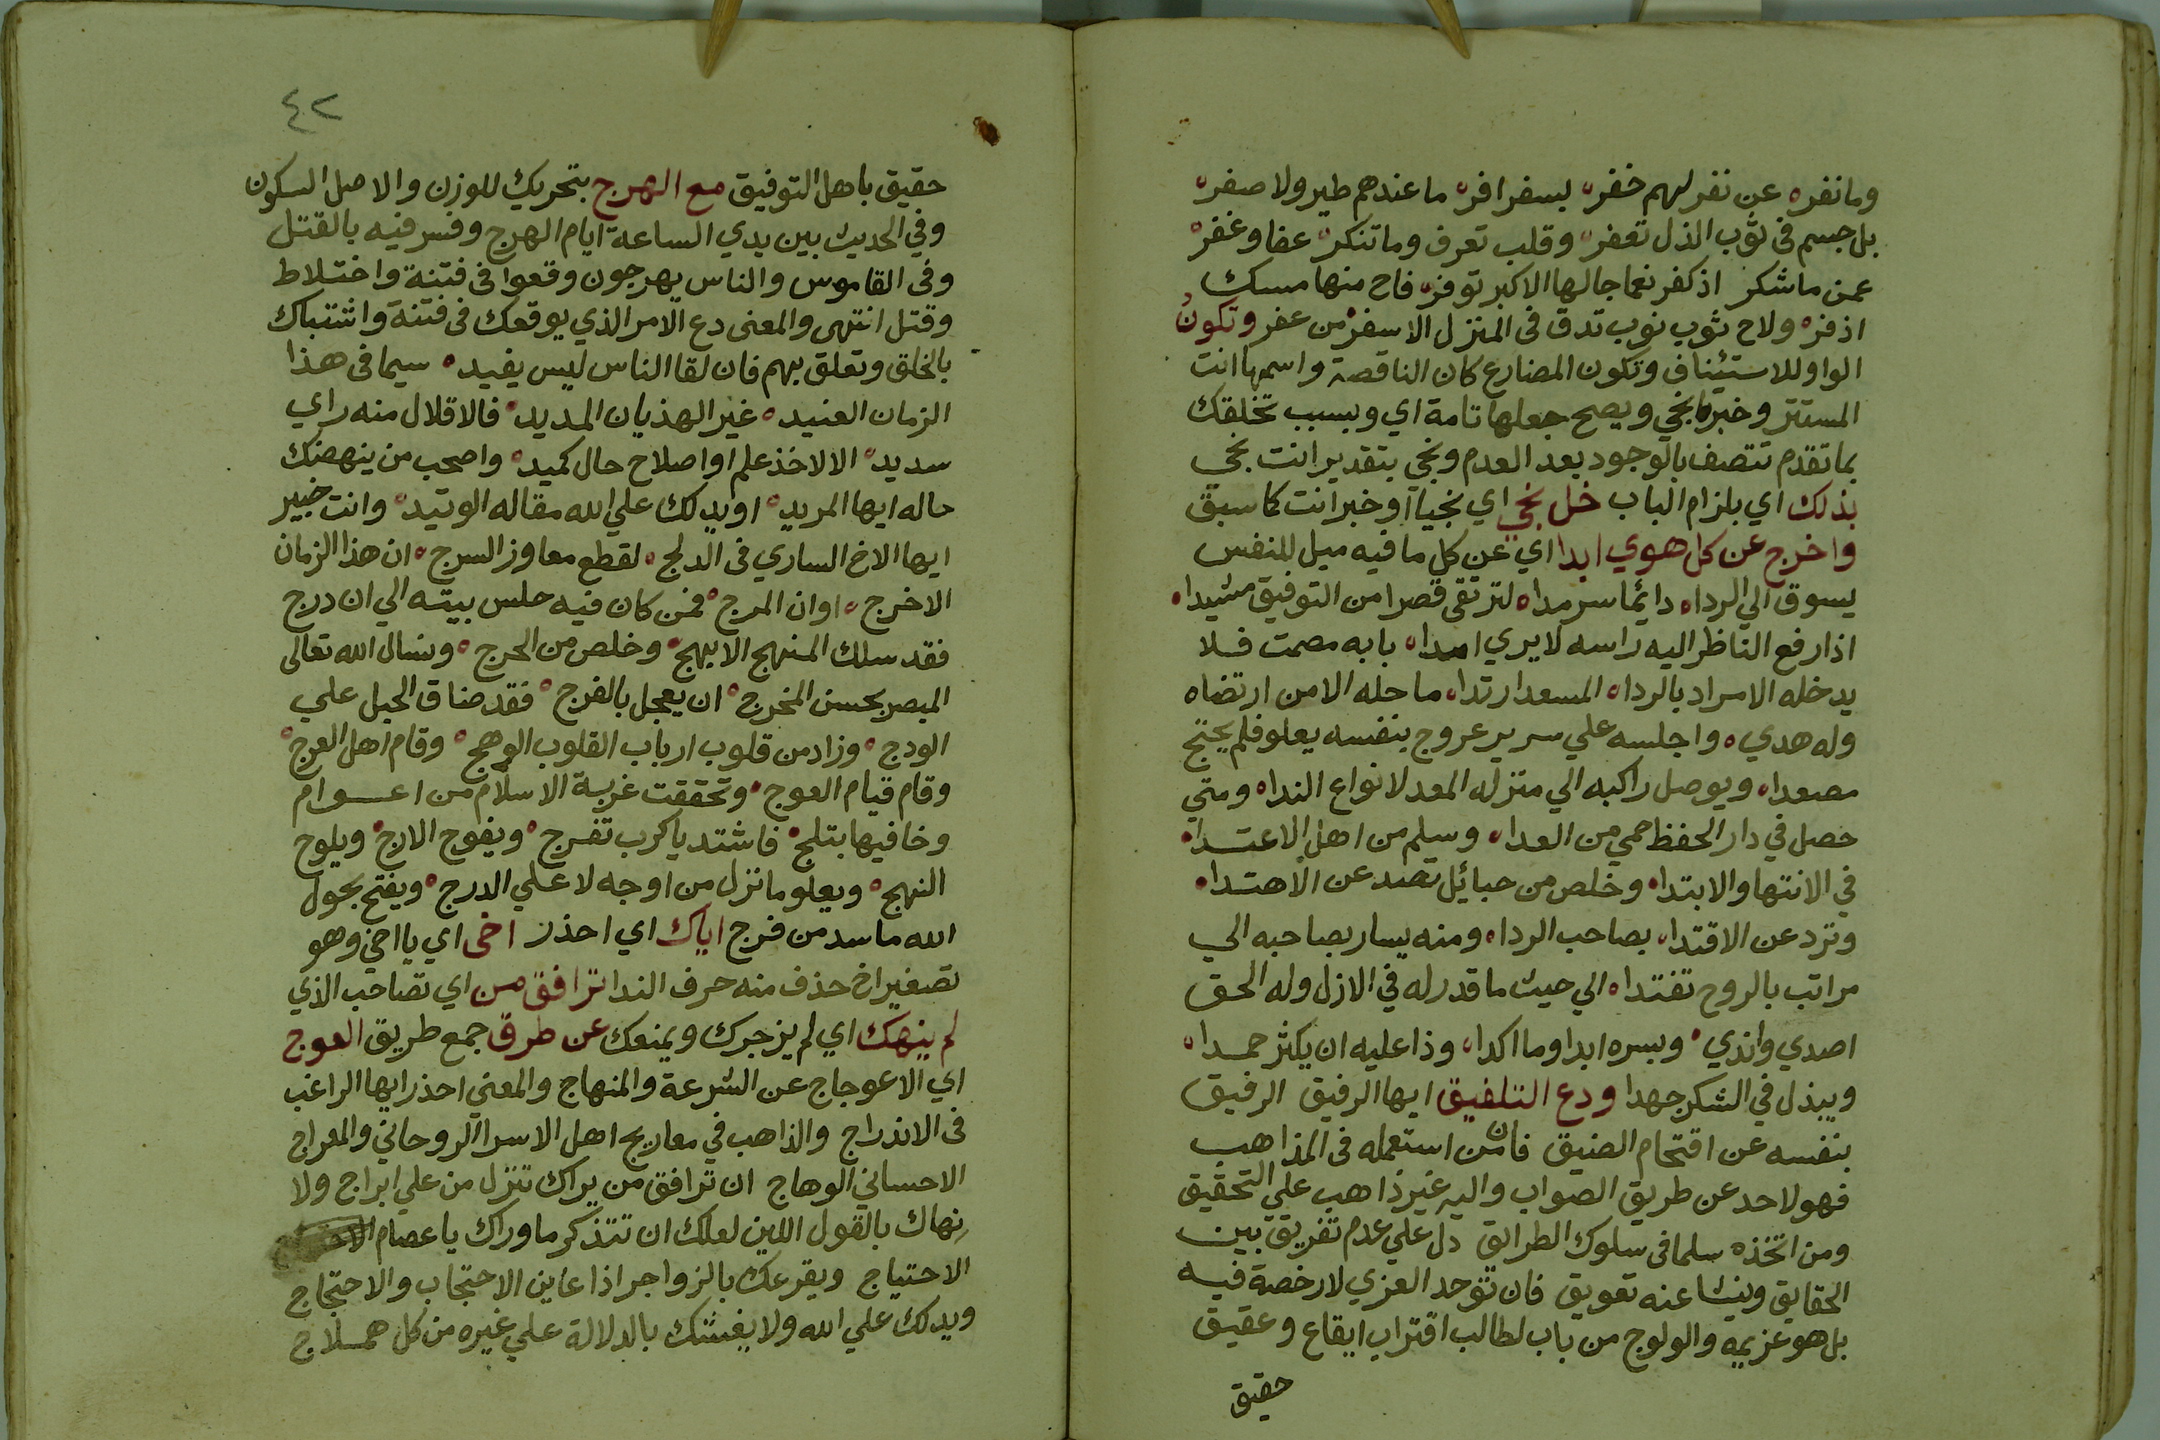 ومانفره عن نفر لهم خفره بسفر افره ما عندهم طير ولا صفره
بل جسم في ثوب الذل تعفره وقلب تعرف وما تنكره عفا وغفره
عمن ماشكر اذ كفر نعما جالها الاكبر توفره فاح منها مسك
اذفره ولاح ثوب نوب تدق في المنزل الاسفره من عفر وتكون
الواو للاستئناف وتكون المضارع كان الناقصة واسمها انت
المستتر وخبرها نجي ويصح جعلها تامة اي وبسبب تخلقك
بما تقدم تتصف بالوجود بعد العدم ونجي بتقدير انت نجي
بذلك اي بلزام الباب خل نجي اي نجيا او خبر انت كما سبق
واخرج عن كل هوي ابدا اي عن كل ما فيه ميل للنفس
يسوق الي الرداه دايما سرمداه لترتقي قصرا من التوفيق مشيداه
اذا رفع الناظر اليه راسه لا يري امداه بابه مصمت فلا
يدخله الا مراد بالرداه المسعد ارتداه ماحله الا من ارتضاه
وله هدي ه واجلسه علي سرير عروج بنفسه يعلو فلم يحتج
مصعداه ويوصل راكبه الي منزله المعد لانواع النداه ومتي
حصل في دار الحفظ حمي من العداه وسلم من اهل الاعتداه
في الانتها والابتداه وخلص من حبائل تصد عن الاهتداه
وترد عن الاقتداه بصاحب الرداه ومنه يسار بصاحبه الي
مراتب بالروح تفتداه الي حيث ما قدر له في الازل وله الحق
اصدي واندي ه وبسره ابدا وما اكداه وذا عليه ان يكثر حمداه
ويبذل في الشكر جهدا ودع التلفيق ايها الرفيق الرفيق
بنفسه عن اقتحام الضيق فان من استعمله في المذاهب
فهو لاحد عن طريق الصواب واليه غير ذاهب علي التحقيق
ومن اتخذه سلما في سلوك الطرائق دل علي عدم تفريق بين
الحقايق وينشا عنه تعويق فان توحد العزي لا رخصة فيه
بل هو عزيمه والولوج من باب لطالب اقتراب ايقاع وعقيق
حقيق
٤٢
حقيق باهل التوفيق مع الهرج بتحريك للوزن والاصل السكون
وفي الحديث بين يدي الساعة ايام الهرج وفسر فيه بالقتل
وفي القاموس والناس يهرجون وقعوا في فتنة واختلاط
وقتل انتهي والمعني دع الامر الذي يوقعك في فتنة واشتباك
بالخلق وتعلق بهم فان لقا الناس ليس يفيد ه سيما في هذا
الزمان العنيد ه غير الهذيان المديد ه فالاقلال منه راي
سديد ه الا لاخذ علم او اصلاح حال كميد ه واصحب من ينهضك
حاله ايها المريد ه او يدلك علي الله مقاله الوتيد ه وانت خبير
ايها الاخ الساري في الدلج ه لقطع معاوز السرج ه ان هذا الزمان
الاخرج ه اوان المرج ه فمن كان فيه حلس بيته الي ان درج
فقد سلك المنهج الابهج ه وخلص من الحرج ه ونسال الله تعالي
المبصر بحسن المخرج ه ان يعجل بالفرج ه فقد ضاق الحبل علي
الودج ه وزاد من قلوب ارباب القلوب الوهج ه وقام اهل العرج ه
وقام قيام العوج ه وتحققت غربة الاسلام من اعوام
وخافيها بتلج ه فاشتد يا كرب تفرج ه ويفوح الارج ه ويلوح
النهج ه ويعلو ما نزل من اوجه لا علي الدرج ه ويفتح بحول
الله ما سد من فرج اياك اي احذر اخي اي يا اخي وهو
تصغير اخ حذف منه حرف الندا ترافق من اي تصاحب الذي
لم ينهك اي لم يزجرك ويمنعك عن طرق جمع طريق العوج
اي الاعوجاج عن الشرعة والمنهاج والمعني احذر ايها الراغب
في الاندراج والذاهب في معاريج اهل الاسرا الروحاني والمعراج
الاحساني الوهاج ان ترافق من يراك تنزل من علي ابراج ولا
نهاك بالقول اللين لعلك ان تتذكر ماوراك يا عصام
الاحتياج ويقرعك بالزواجر اذا عاين الاحتجاب والاحتجاج
ويدلك علي الله ولا يغشك بالدلالة علي غيره من كل هملاج